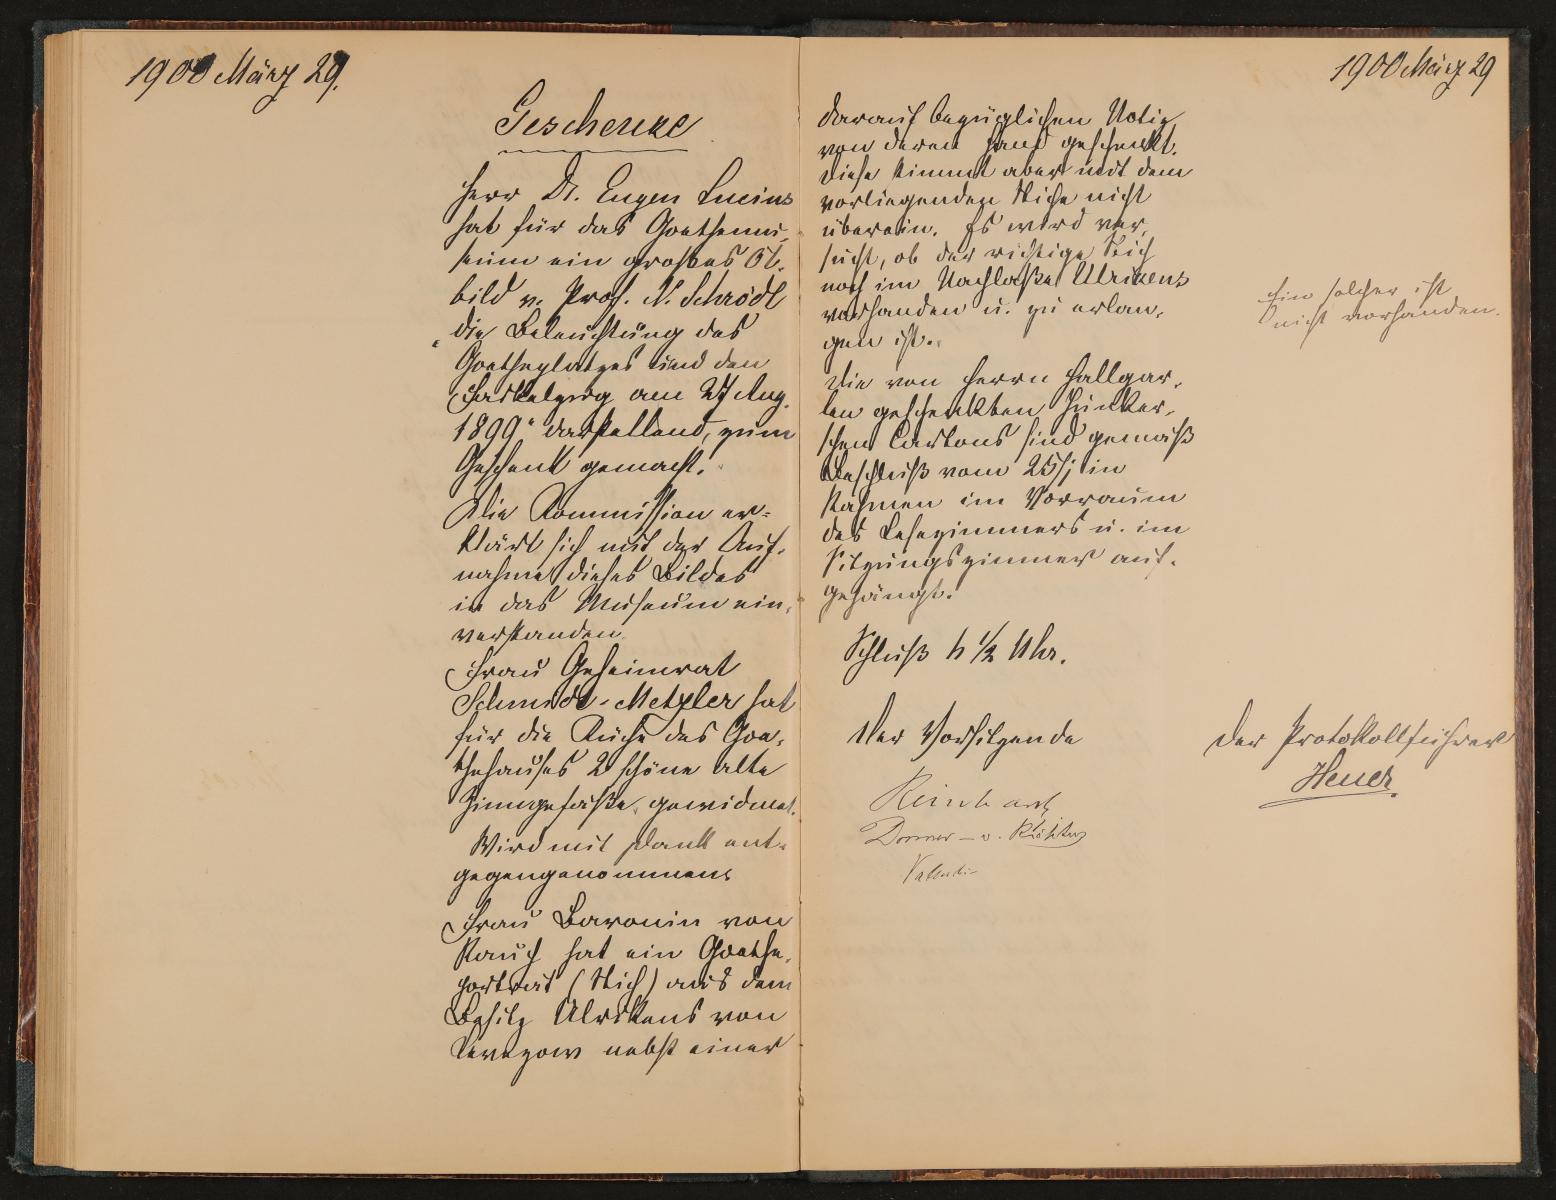 1900 März 29.
Geschenke
Herr Dr. Eugen Lucius
hat für das Goethemu-
seum ein großes Öl-
bild v. Prof. N. Schrödl
„die Beleuchtung des
Goetheplatzes und den
Fackelzug am 27 Aug.
1899“ darstellend, zum
Geschenk gemacht.
Die Kommission er-
klärt sich mit der Auf-
nahme dieses Bildes
in das Museum ein-
verstanden.
Frau Geheimrat
Schmidt-Metzler hat
für die Küche des Goe-
thehauses 2 schöne alte
Zinngefäße gewidmet.
Wird mit Dank ent-
gegengenommen.
Frau Baronin von
Rauch hat ein Goethe-
portrait (Stich) aus dem
Besitz Ulrikens von
Levezow nebst einer
1900 März 29
darauf bezüglichen Notiz
von deren Hand geschenkt.
Diese stimmt aber mit dem
vorliegenden Stiche nicht
überein. Es wird ver-
sucht, ob der richtige Stich
noch im Nachlaße Ulrikens
vorhanden u. zu erlan-
gen ist.
Ein solcher ist
nicht vorhanden.
Die von Herrn Hallgar-
ten geschenkten Junker-
schen Cartons sind gemäß
Beschluß vom 25/j in
Rahmen im Vorraum
des Lesezimmers u. im
Sitzungszimmer auf-
gehängt.
Schluß 6 1/2 Uhr.
Der Vorsitzende
Der Protokollführer
Heuer.
Reinhardt
Donner-v. Richter
Valentin